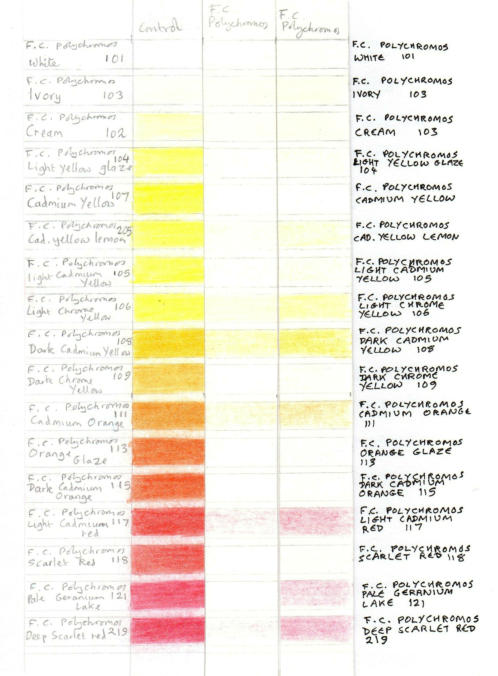 Control
F.C
Polychromos
F.C.
Polychromos
F.C. Polychromos
White 101
F.C. POLYCHROMOS
WHITE 101
F.C. Polychromos
Ivory 103
F.C. POLYCHROMOS
IVORY 103
F.C. Polychromos
Cream 102
F.C. POLYCHROMOS
CREAM 103
F.C. Polychromos
104
Light Yellow glaze
F.C. POLYCHROMOS
LIGHT YELLOW GLAZE
104
F.C. Polychromos
107
Cadmium Yellow
F.C. POLYCHROMOS
CADMIUM YELLOW
F.C. Polychromos
205
Cad. yellow lemon
F.C. POLYCHROMOS
CAD. YELLOW LEMON
F.C. Polychromos
light Cadmium 105
Yellow
F.C. POLYCHROMOS
LIGHT CADMIUM
YELLOW 105
F.C. Polychromos
Light Chrome 106
Yellow
F.C. POLYCHROMOS
LIGHT CHROME
YELLOW 106
F.C. Polychromos
108
Dark Cadmium Yellow
F.C. POLYCHROMOS
DARK CADMIUM
YELLOW 108
F.C. Polychromos
Dark Chrome 109
Yellow
F.C. POLYCHROMOS
DARK CHROME
YELLOW 109
F.C. Polychromos
111
Cadmium Orange
F.C. POLYCHROMOS
CADMIUM ORANGE
111
F.C. Polychromos
Orange 113
Glaze
F.C. POLYCHROMOS
ORANGE GLAZE
113
F.C. Polychromos
Dark Cadmium 115
Orange
F.C. POLYCHROMOS
DARK CADMIUM
ORANGE 115
F.C. Polychromos
Light Cadmium 117
red
F.C. POLYCHROMOS
LIGHT CADMIUM
RED 117
F.C. Polychromos
Scarlet Red 118
F.C. POLYCHROMOS
SCARLET RED 118
F.C. Polychromos
Pale Geranium 121
Lake
F.C. POLYCHROMOS
PALE GERANIUM
LAKE 121
F.C. Polychromos
Deep Scarlet red 219
F.C. POLYCHROMOS
DEEP SCARLET RED
219